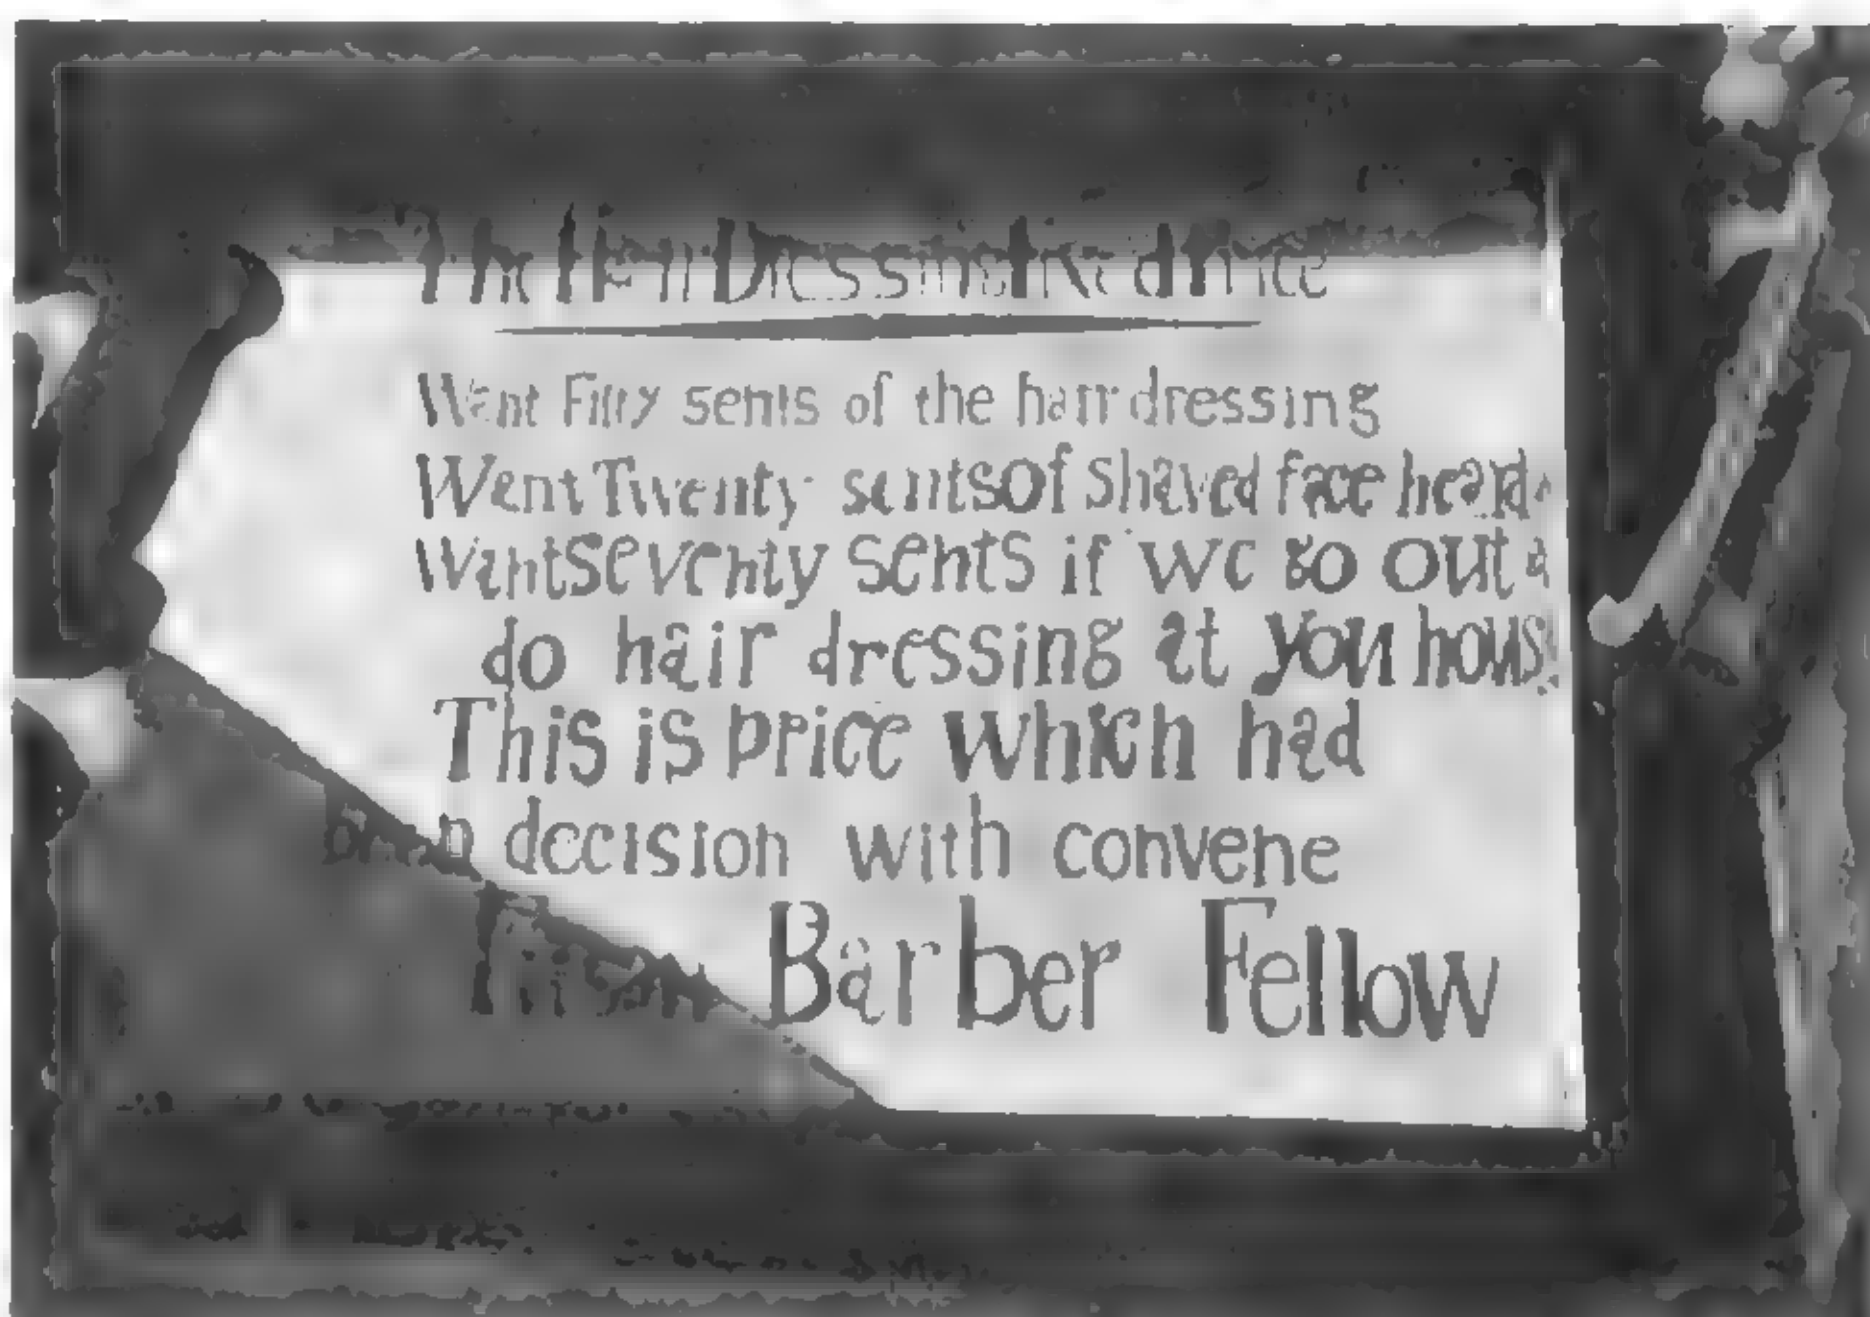 The Hair Dressing Fixed Price
Want Fifty sents of the hair dressing
Want Twenty sents of shaved face heard
Want seventy sents if we go out
do hair dressing at you hous
This is price which had
been decision with convene
Barber Fellow